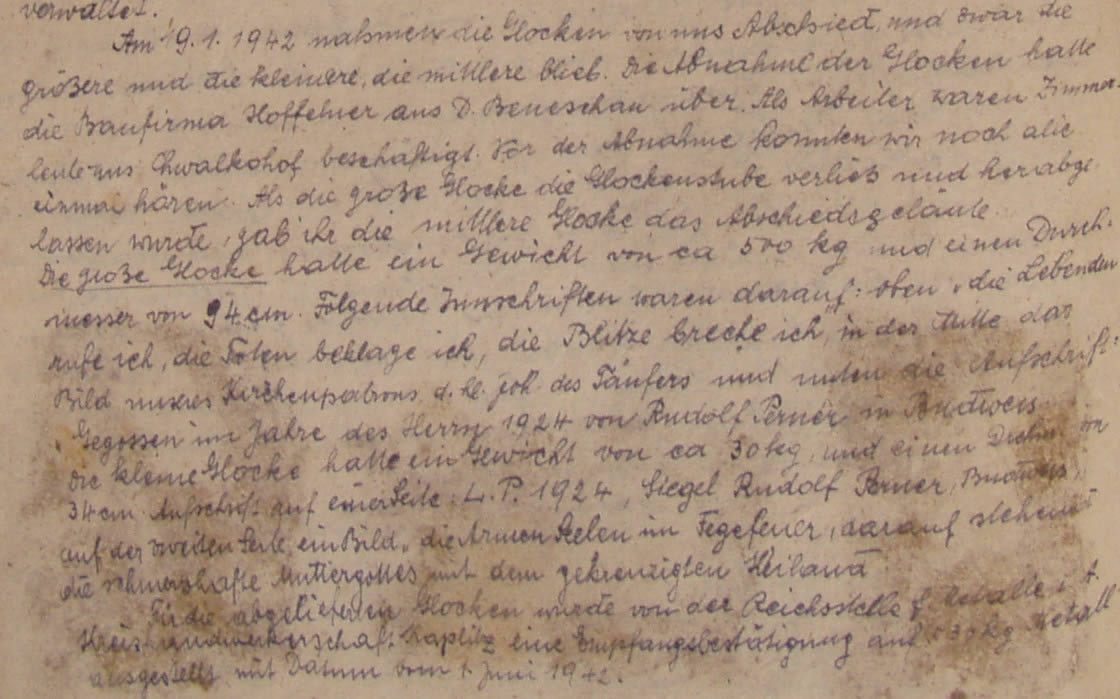 verwaltet.
Am 19.1.1942 nahmen die Glocken von uns Abschied, und zwar die
größere und die kleinere, die mittlere blieb. Die Abnahme der Glocken hatte
die Baufirma Hoffelner aus D. Beneschau über. Als Arbeiter waren Zimmer-
leute aus Chwalkohof beschäftigt. Vor der Abnahme konnten wir noch alle
einmal hören. Als die große Glocke die Glockenstube verließ und herabge-
lassen wurde, gab ihr die mittlere Glocke das Abschiedsgeläute.
Die große Glocke hatte ein Gewicht von ca 500 kg und einen Durch-
messer von 94 cm. Folgende Innschriften waren darauf: oben „die Lebenden
rufe ich, die Toten beklage ich, die Blitze breche ich, in der Mitte das
Bild unseres Kirchenpatrons d. hl. Joh. des Täufers und unten die Aufschrift:
„Gegossen im Jahre des Herrn 1924 von Rudolf Perner in Budweis
Die kleine Glocke hatte ein Gewicht von ca 30 kg, und einen Durchm von
34 cm. Aufschrift auf einer Seite: L.P. 1924, Siegel Rudolf Perner, Budweis,
auf der zweiten Seite ein Bild „die Armen Seelen im Fegefeuer, darauf stehend
die schmerzhafte Muttergottes mit dem gekreuzigten Heiland
Für die abgelieferten Glocken wurde von der Reichsstelle f. Metalle i. A.
Kreishandwerkerschaft Kaplitz eine Empfangsbestätigung auf 530 kg Metall
ausgestellt mit Datum vom 1. Juni 1942.